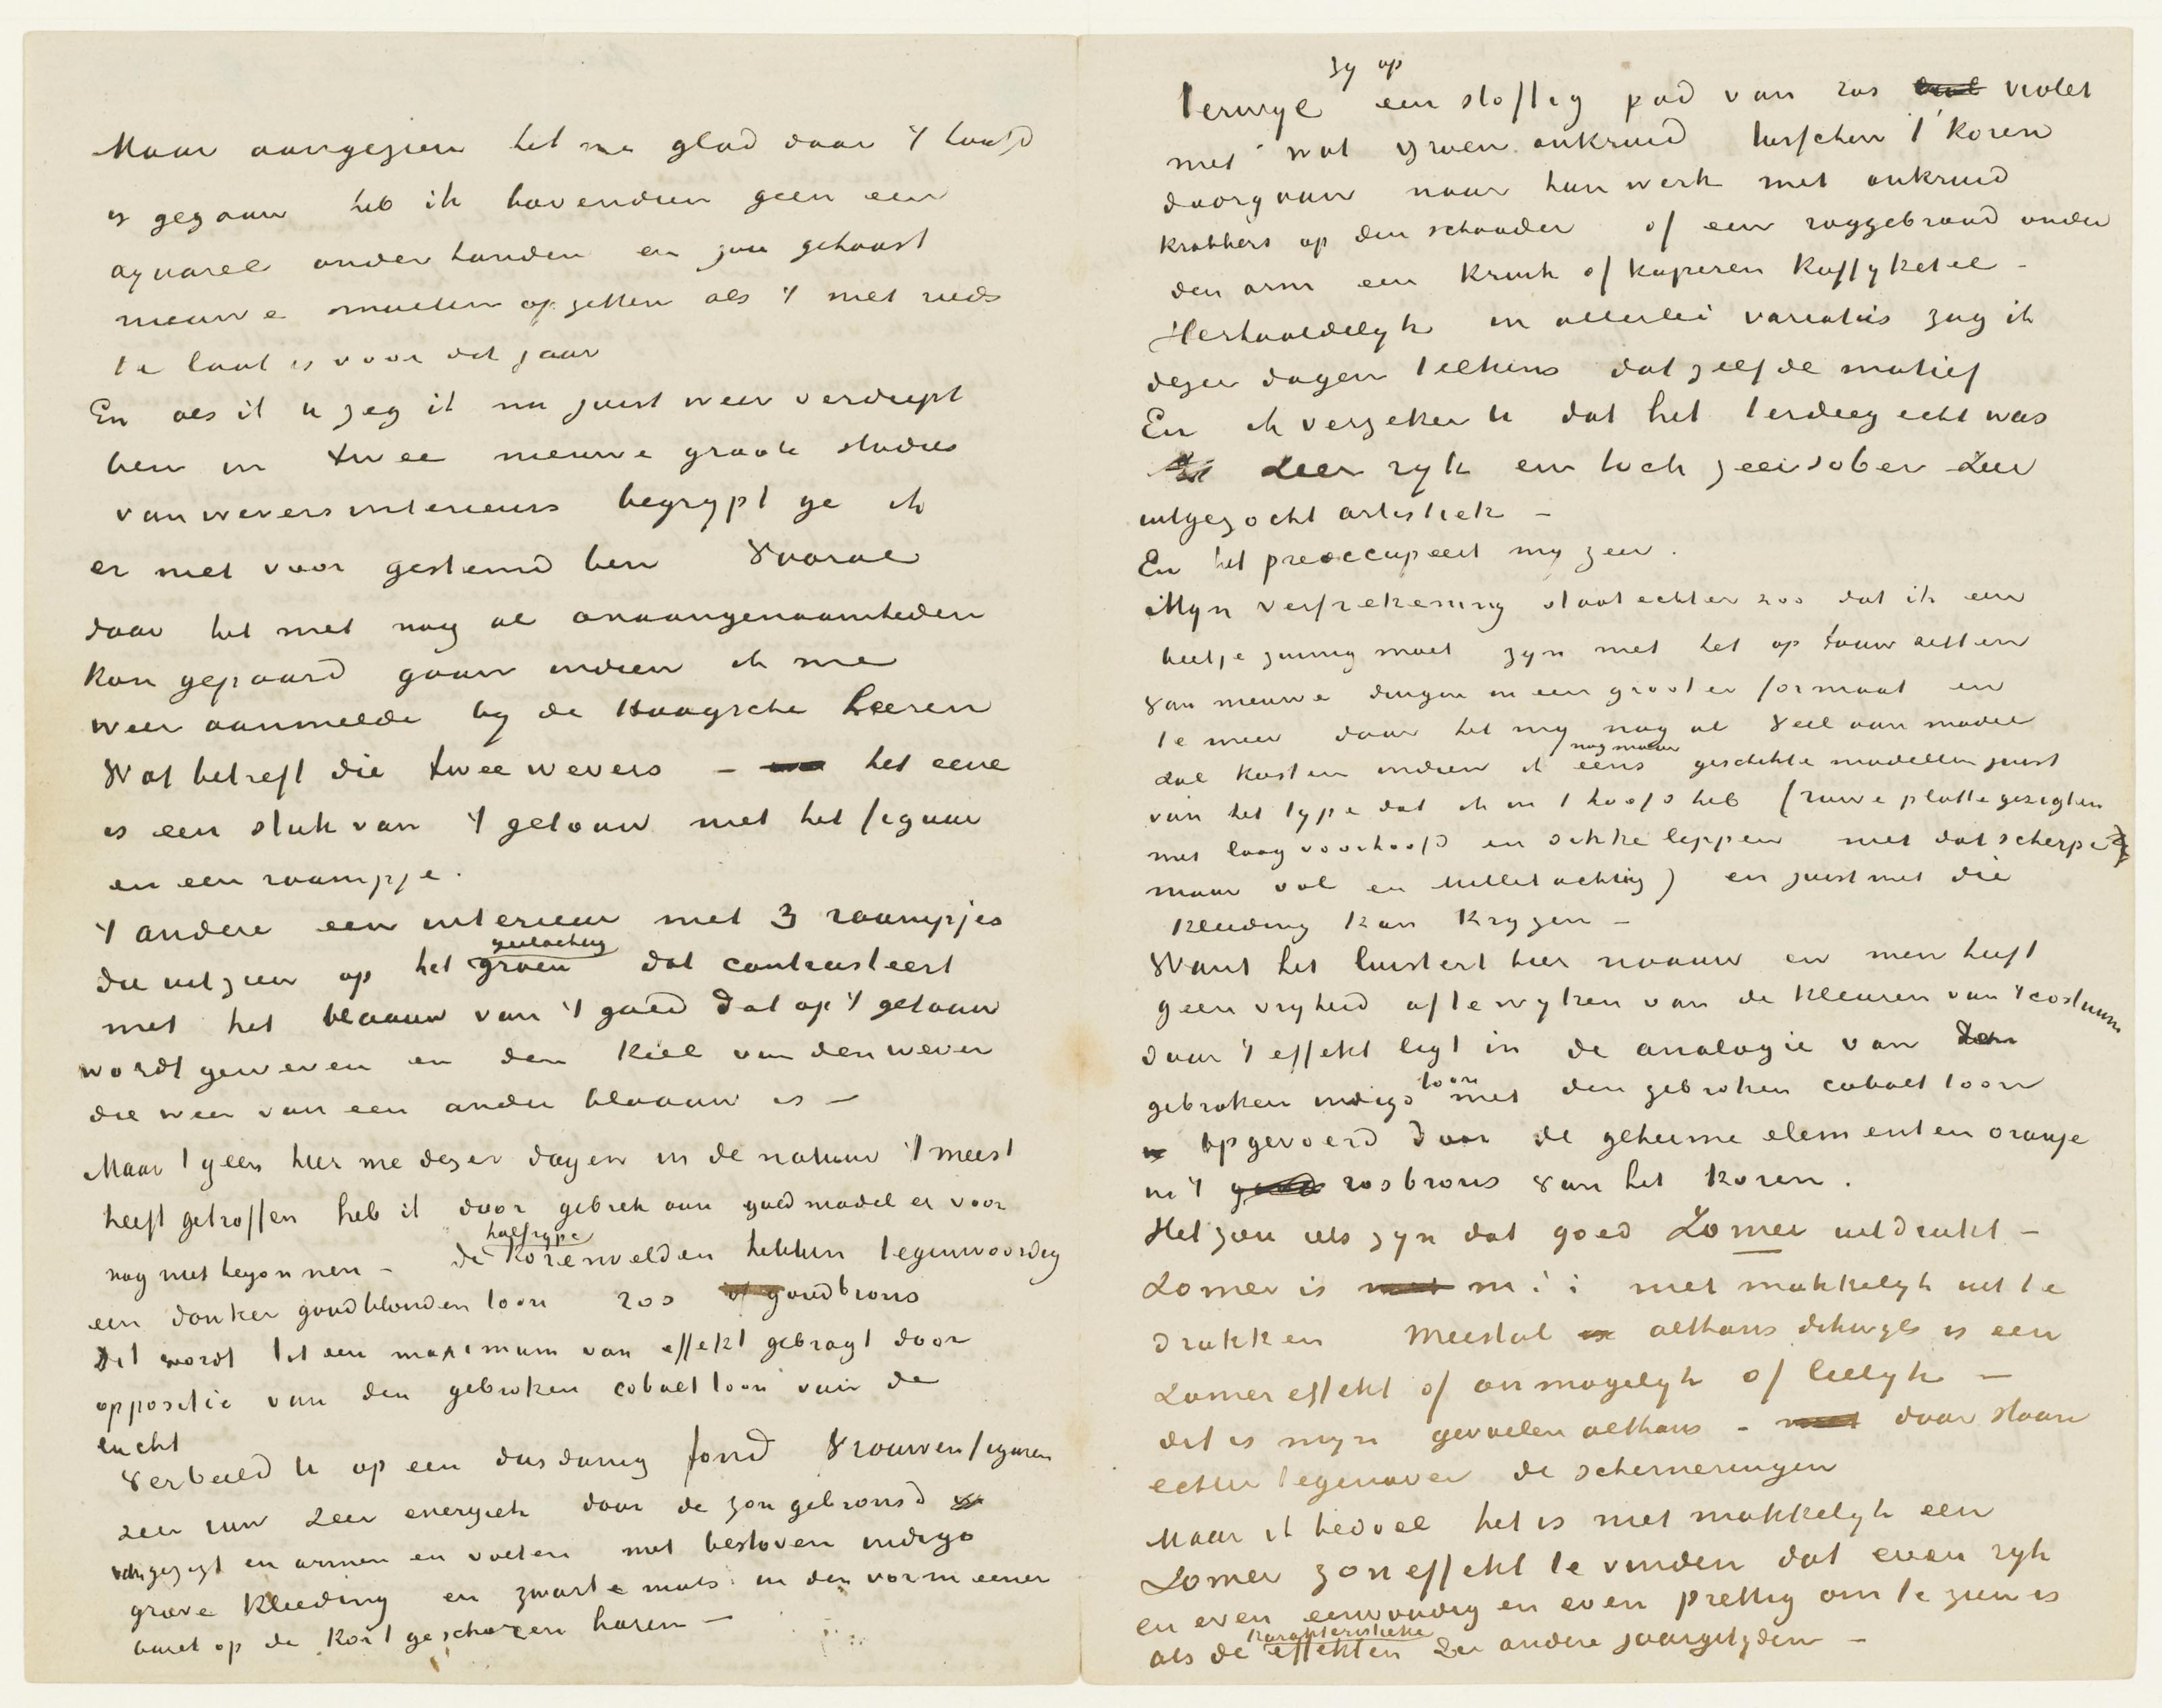 Maar aangezien het me glad door 't hoofd
is gegaan heb ik bovendien geen een
aquarel onder handen en zou gehaast
nieuwe moeten opzetten als 't niet reeds
te laat is voor dit jaar
En als ik u zeg ik nu juist weer verdiept
ben in twee nieuwe groote studies
van weversinterieurs begrypt ge ik
er niet voor gestemd ben Vooral
daar het met nog al onaangenaamheden
kan gepaard gaan indien ik me
weer aanmeldde by de Haagsche heeren
Wat betreft die twee wevers – het eene
is een stuk van 't getouw met het figuur
en een raampje.
't andere een interieur met 3 raampjes
die uitzien op het geelachtig groen dat contrasteert
met het blaauw van 't goed dat op 't getouw
wordt geweven en den kiel van den wever
die weer van een ander blaauw is –
Maar 't geen hier me dezer dagen in de natuur 't meest
heeft getroffen heb ik door gebrek aan goed model er voor
nog niet begonnen – de halfrype korenvelden hebben tegenwoordig
een donker goudblonden toon ros of goudbrons
Dit wordt tot een maximum van effekt gebragt door
oppositie van den gebroken cobalt toon van de
lucht
Verbeeld u op een dusdanig fond vrouwenfiguren
zeer ruw zeer energiek door de zon gebronsd
van gezigt en armen en voeten met bestoven indigo
grove kleeding en zwarte muts in den vorm eener
baret op de kort geschoren haren –
terwyl zy op een stoffig pad van ros violet
met wat groen onkruid tusschen 't koren
doorgaan naar hun werk met onkruid
krabbers op den schouder of een roggebrood onder
den arm een kruik of kuperen koffyketel –
Herhaaldelyk in allerlei variaties zag ik
dezer dagen telkens datzelfde motief
En ik verzeker u dat het terdeeg echt was
Zeer ryk en toch zeer sober zeer
uitgezocht artistiek –
En het preoccupeert my zeer.
Myn verfrekening staat echter zoo dat ik een
beetje zuinig moet zyn met het op touw zetten
van nieuwe dingen in een grooter formaat en
te meer daar het my nog al veel aan model
zal kosten indien ik nog maar eens geschikte modellen juist
van het type dat ik in 't hoofd heb (ruwe platte gezigten
met laag voorhoofd en dikke lippen niet dat scherpe
maar vol en Milletachtig) en juist met die
kleeding kan krygen –
Want het luistert hier naauw en men heeft
geen vryheid af te wyken van de kleuren van 't costuum
daar 't effekt ligt in de analogie van den
gebroken indigo toon met den gebroken cobalt toon
opgevoerd door de geheime elementen oranje
in 't rosbrons van het koren.
Het zou iets zyn dat goed Zomer uitdrukt –
Zomer is m.i. niet makkelyk uit te
drukken Meestal althans dikwyls is een
Zomereffekt of onmogelyk of leelyk –
dit is myn gevoelen althans – daar staan
echter tegenover de schemeringen
Maar ik bedoel het is niet makkelyk een
Zomer zon effekt te vinden dat even ryk
en even eenvoudig en even prettig om te zien is
als de karakteristieke effekten der andere jaargetyden –